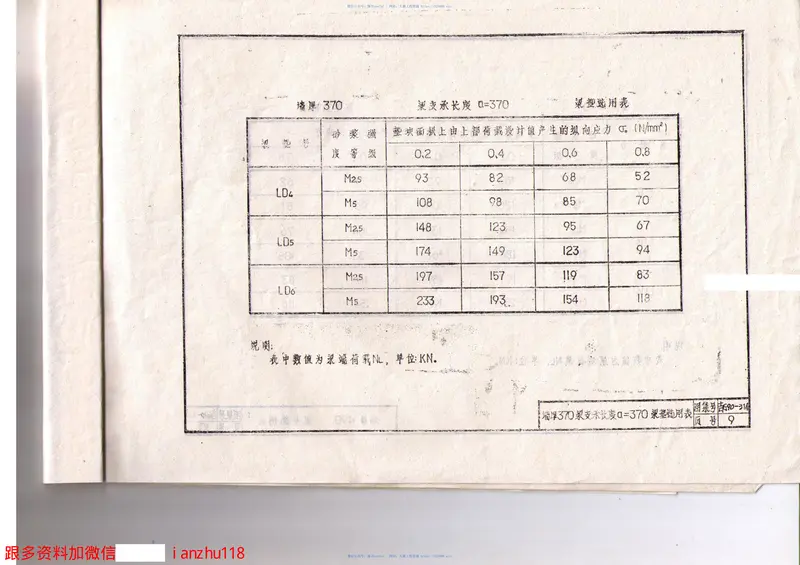 墙厚 370 梁支承长度 a=370 梁垫选用表
梁垫号 砂浆强度等级 垫块面积上由上部荷载设计值产生的纵向应力 σ₀ (N/mm²)
0.2 0.4 0.6 0.8
LD4 M2.5 93 82 68 52
M5 108 98 85 70
LD5 M2.5 148 123 95 67
M5 174 149 123 94
LD6 M2.5 197 157 119 83
M5 233 193 154 118
说明:
表中数值为梁端荷载NL, 单位:KN.
墙厚370梁支承长度a=370梁垫选用表 图集号
页号 9
跟多资料加微信 ianzhu118